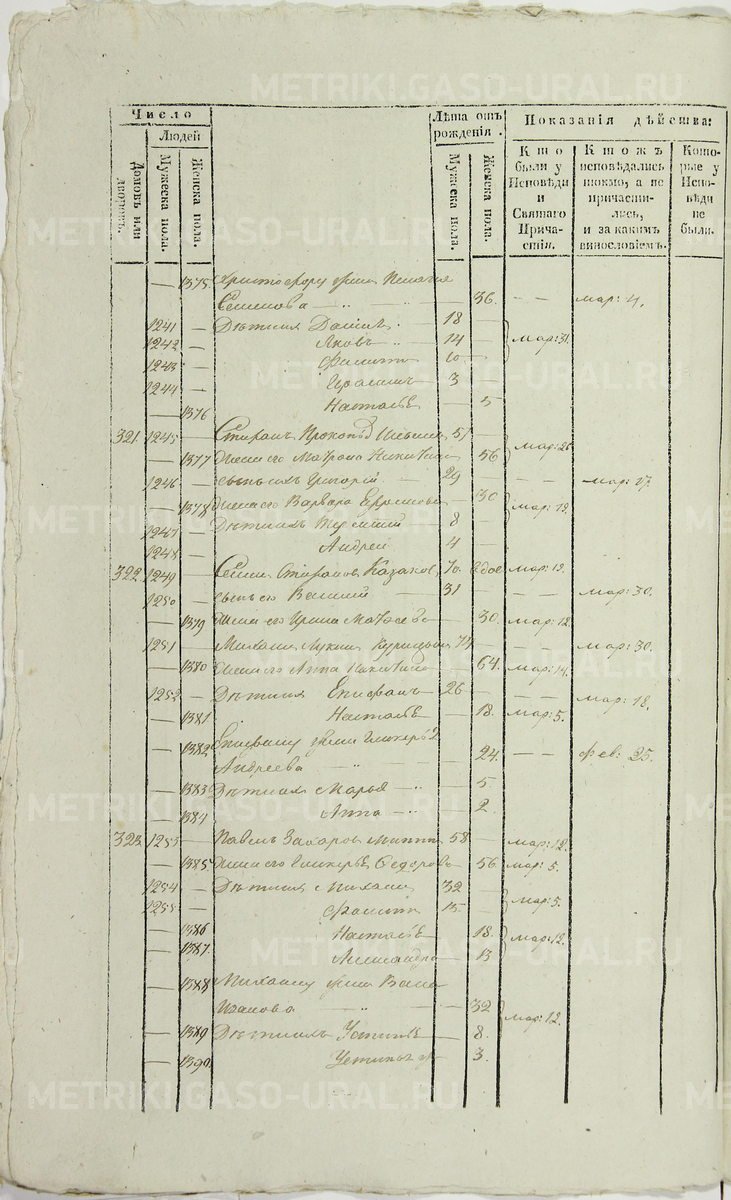 METRIKI.GASO-URAL.RU
Число
Людей
Домовъ или дворовъ.
Мужеска пола.
Женска пола.
Лѣта отъ рожденія.
Мужеска пола.
Женска пола.
Показанія дѣйства:
Кто были у Исповѣди и Святаго Причастія.
Ктожъ исповѣдались токмо, а не причастились, и за какимъ винословіемъ.
Которые у Исповѣди не были.
— 1375 Христофору жена
Семенова — 36. — — мар: 4.
1241 — Дѣти их Данилъ 18 —
1242 — Яковъ 14 — мар: 31
1243 — Филипъ 10 —
1244 — 3 —
— 1376 Настасья — 5
321 1245 — Стефанъ 51 —
— 1377 жена его Матрона Никитина — 56 мар: 26.
1246 — сынъ ихъ Григорій 29 — — — мар: 17.
— 1378 жена его Варвара — 30
1247 — Дѣти ихъ 8 — мар: 12.
1248 — Андрей 4 —
322 1249 — Стефановъ Казаковъ 70. вдов мар: 12.
1250 — сынъ его Василий 31 — — — мар: 30.
— 1379 жена его Ирина — 30. мар: 12
1251 — Михаилъ Лукинъ 74 — — — мар: 30.
— 1380 жена его Анна Никитина — 64. мар: 14.
1252 — Дѣти их Епифанъ 26 — — — мар: 18.
— 1381 Настасья — 18. мар: 5.
— 1382 Епифану жена Гликерья
Андреева — 24. — — фев: 25.
— 1383 Дѣти их Марья — 5.
— 1384 Анна — 2.
323 1253 — Павелъ Захаровъ 58 — мар: 12.
— 1385 жена его Гликерья Федорова — 56. мар: 5.
1254 — Дѣти их Михаилъ 32 —
1255 — Филипъ 15 — мар: 5.
— 1386 Настасья — 18. мар: 12.
— 1387. Александра — 13
— 1388 Михаилу жена
Иванова — 32
— 1389 Дѣти ихъ Устинья — 8. мар: 12.
— 1390 — 3.